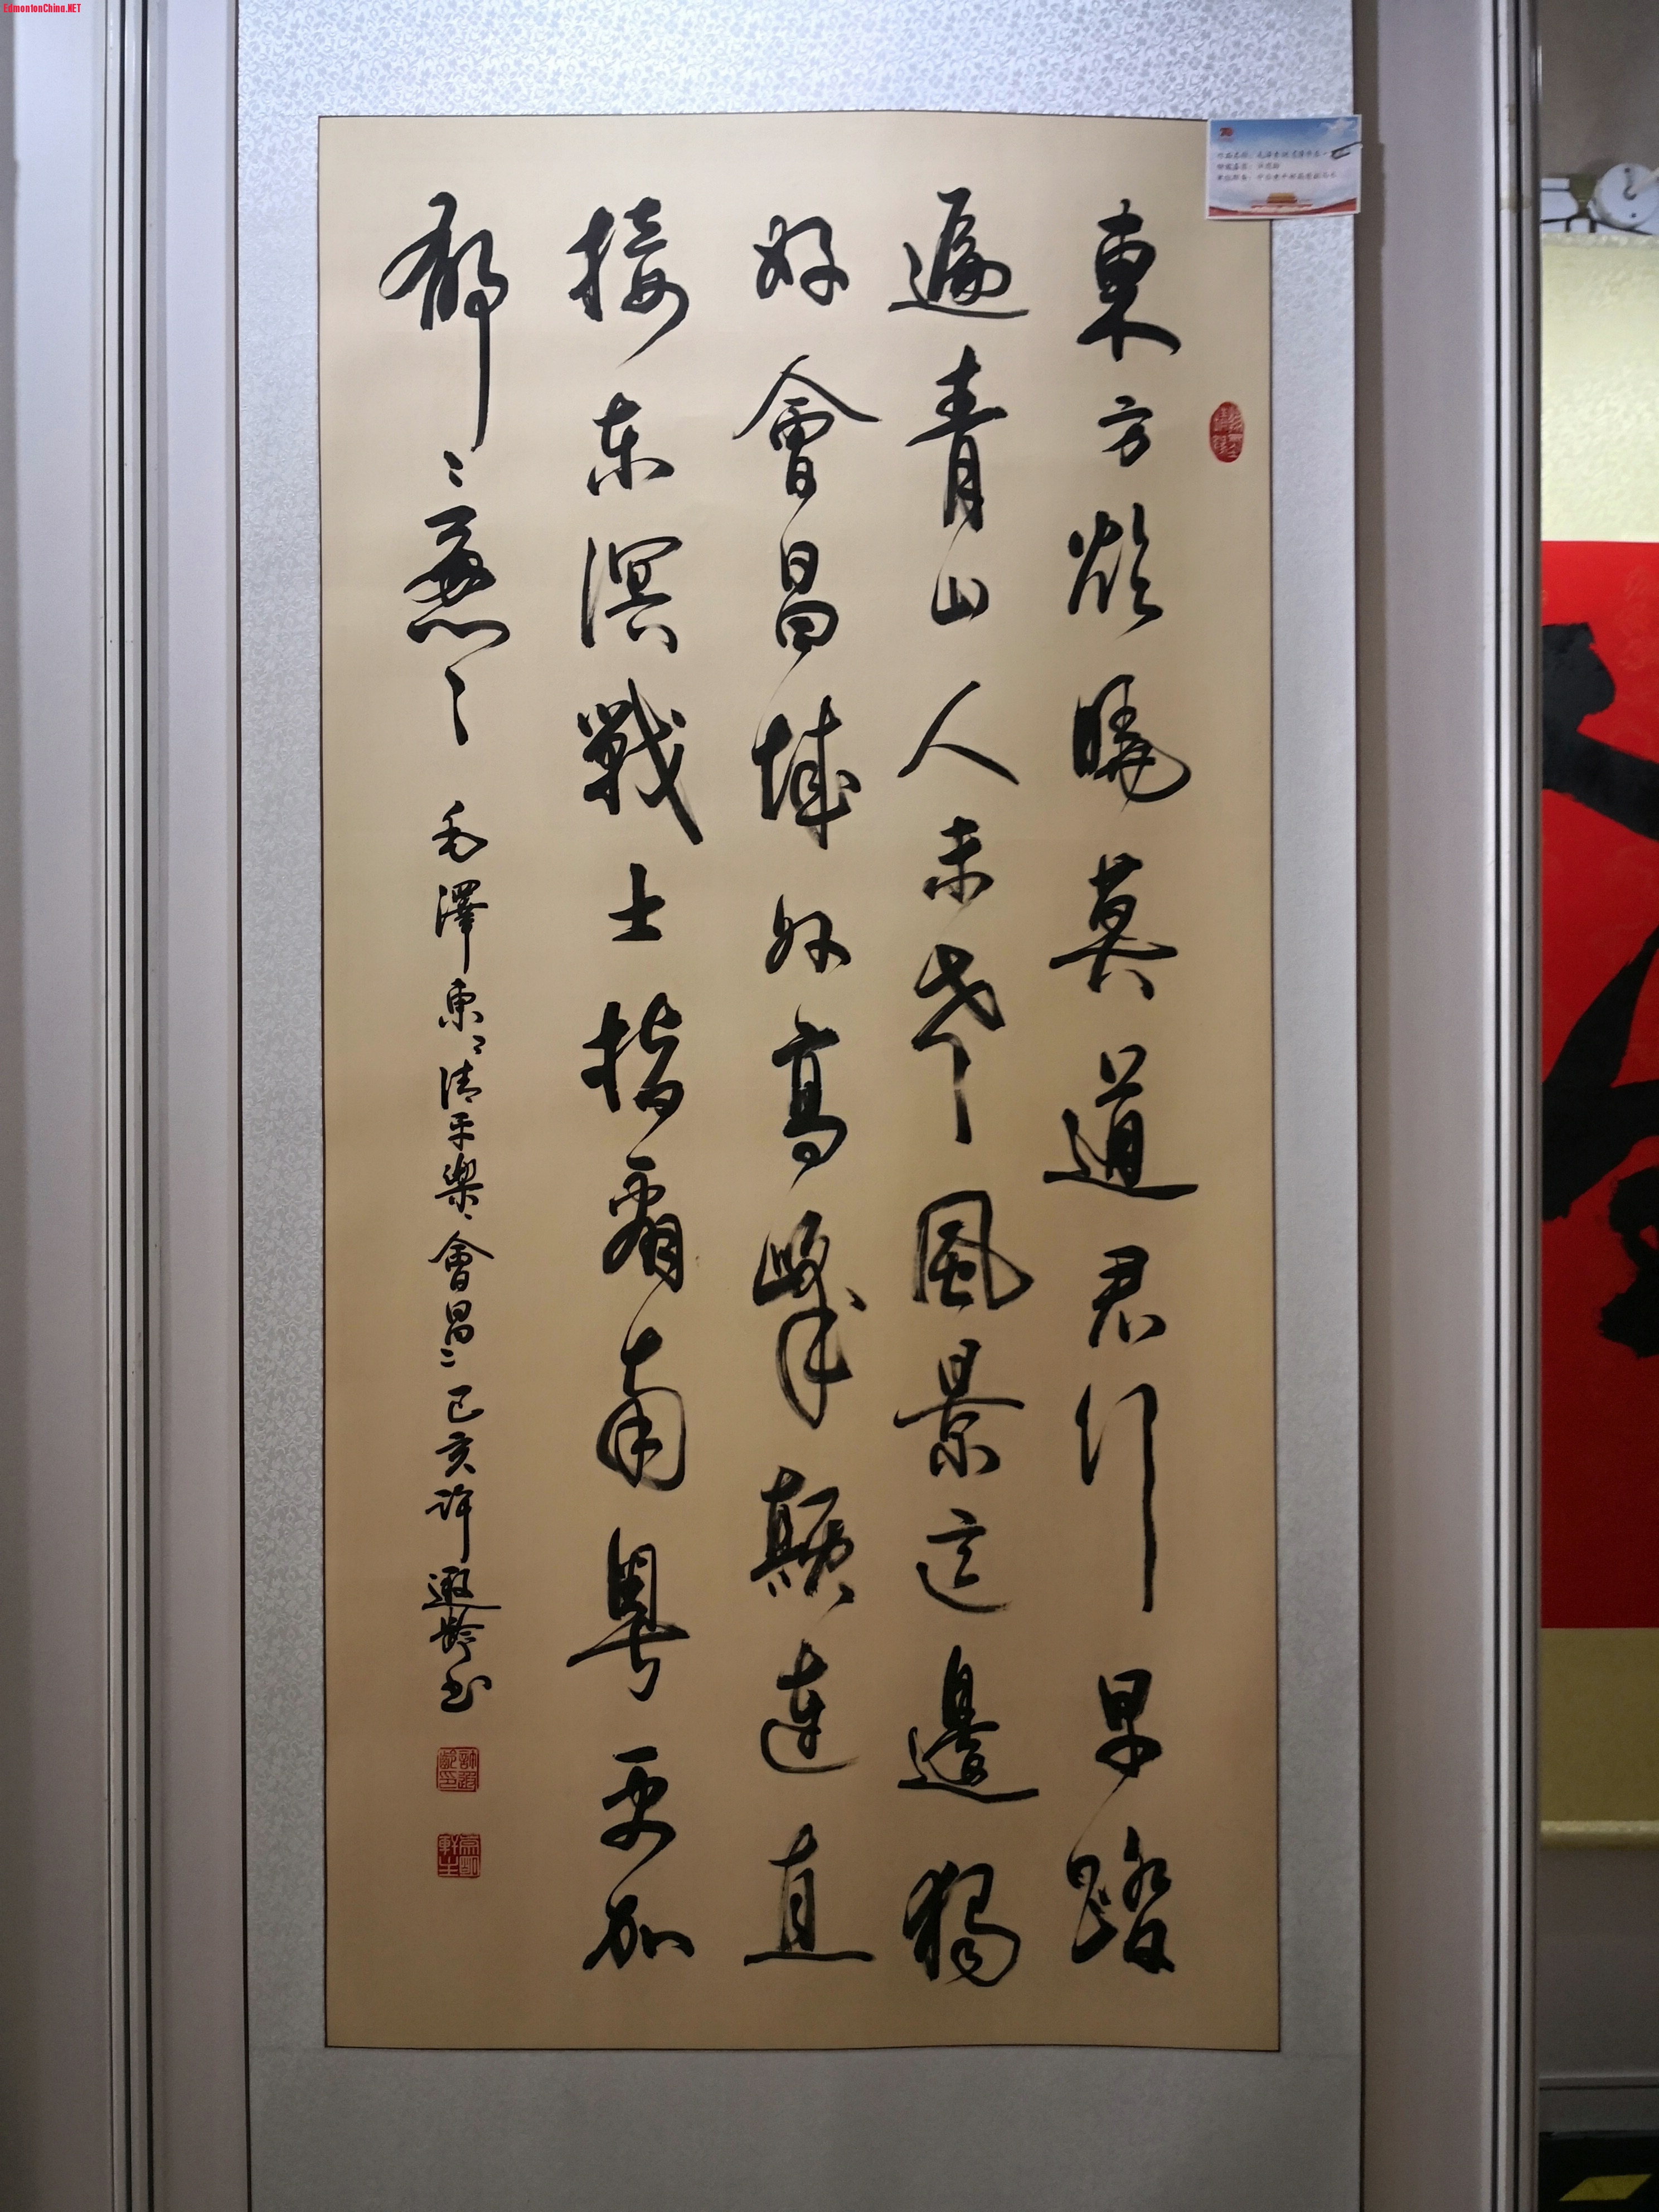 EdmontonChina.NET
東方欲曉莫道君行早踏
遍青山人未老風景這邊獨
好會昌城外高峰顛連直
接东溟戰士指看南粤更加
郁々葱々 毛澤東清平樂會昌 己亥許遐齡书
許遐齡印